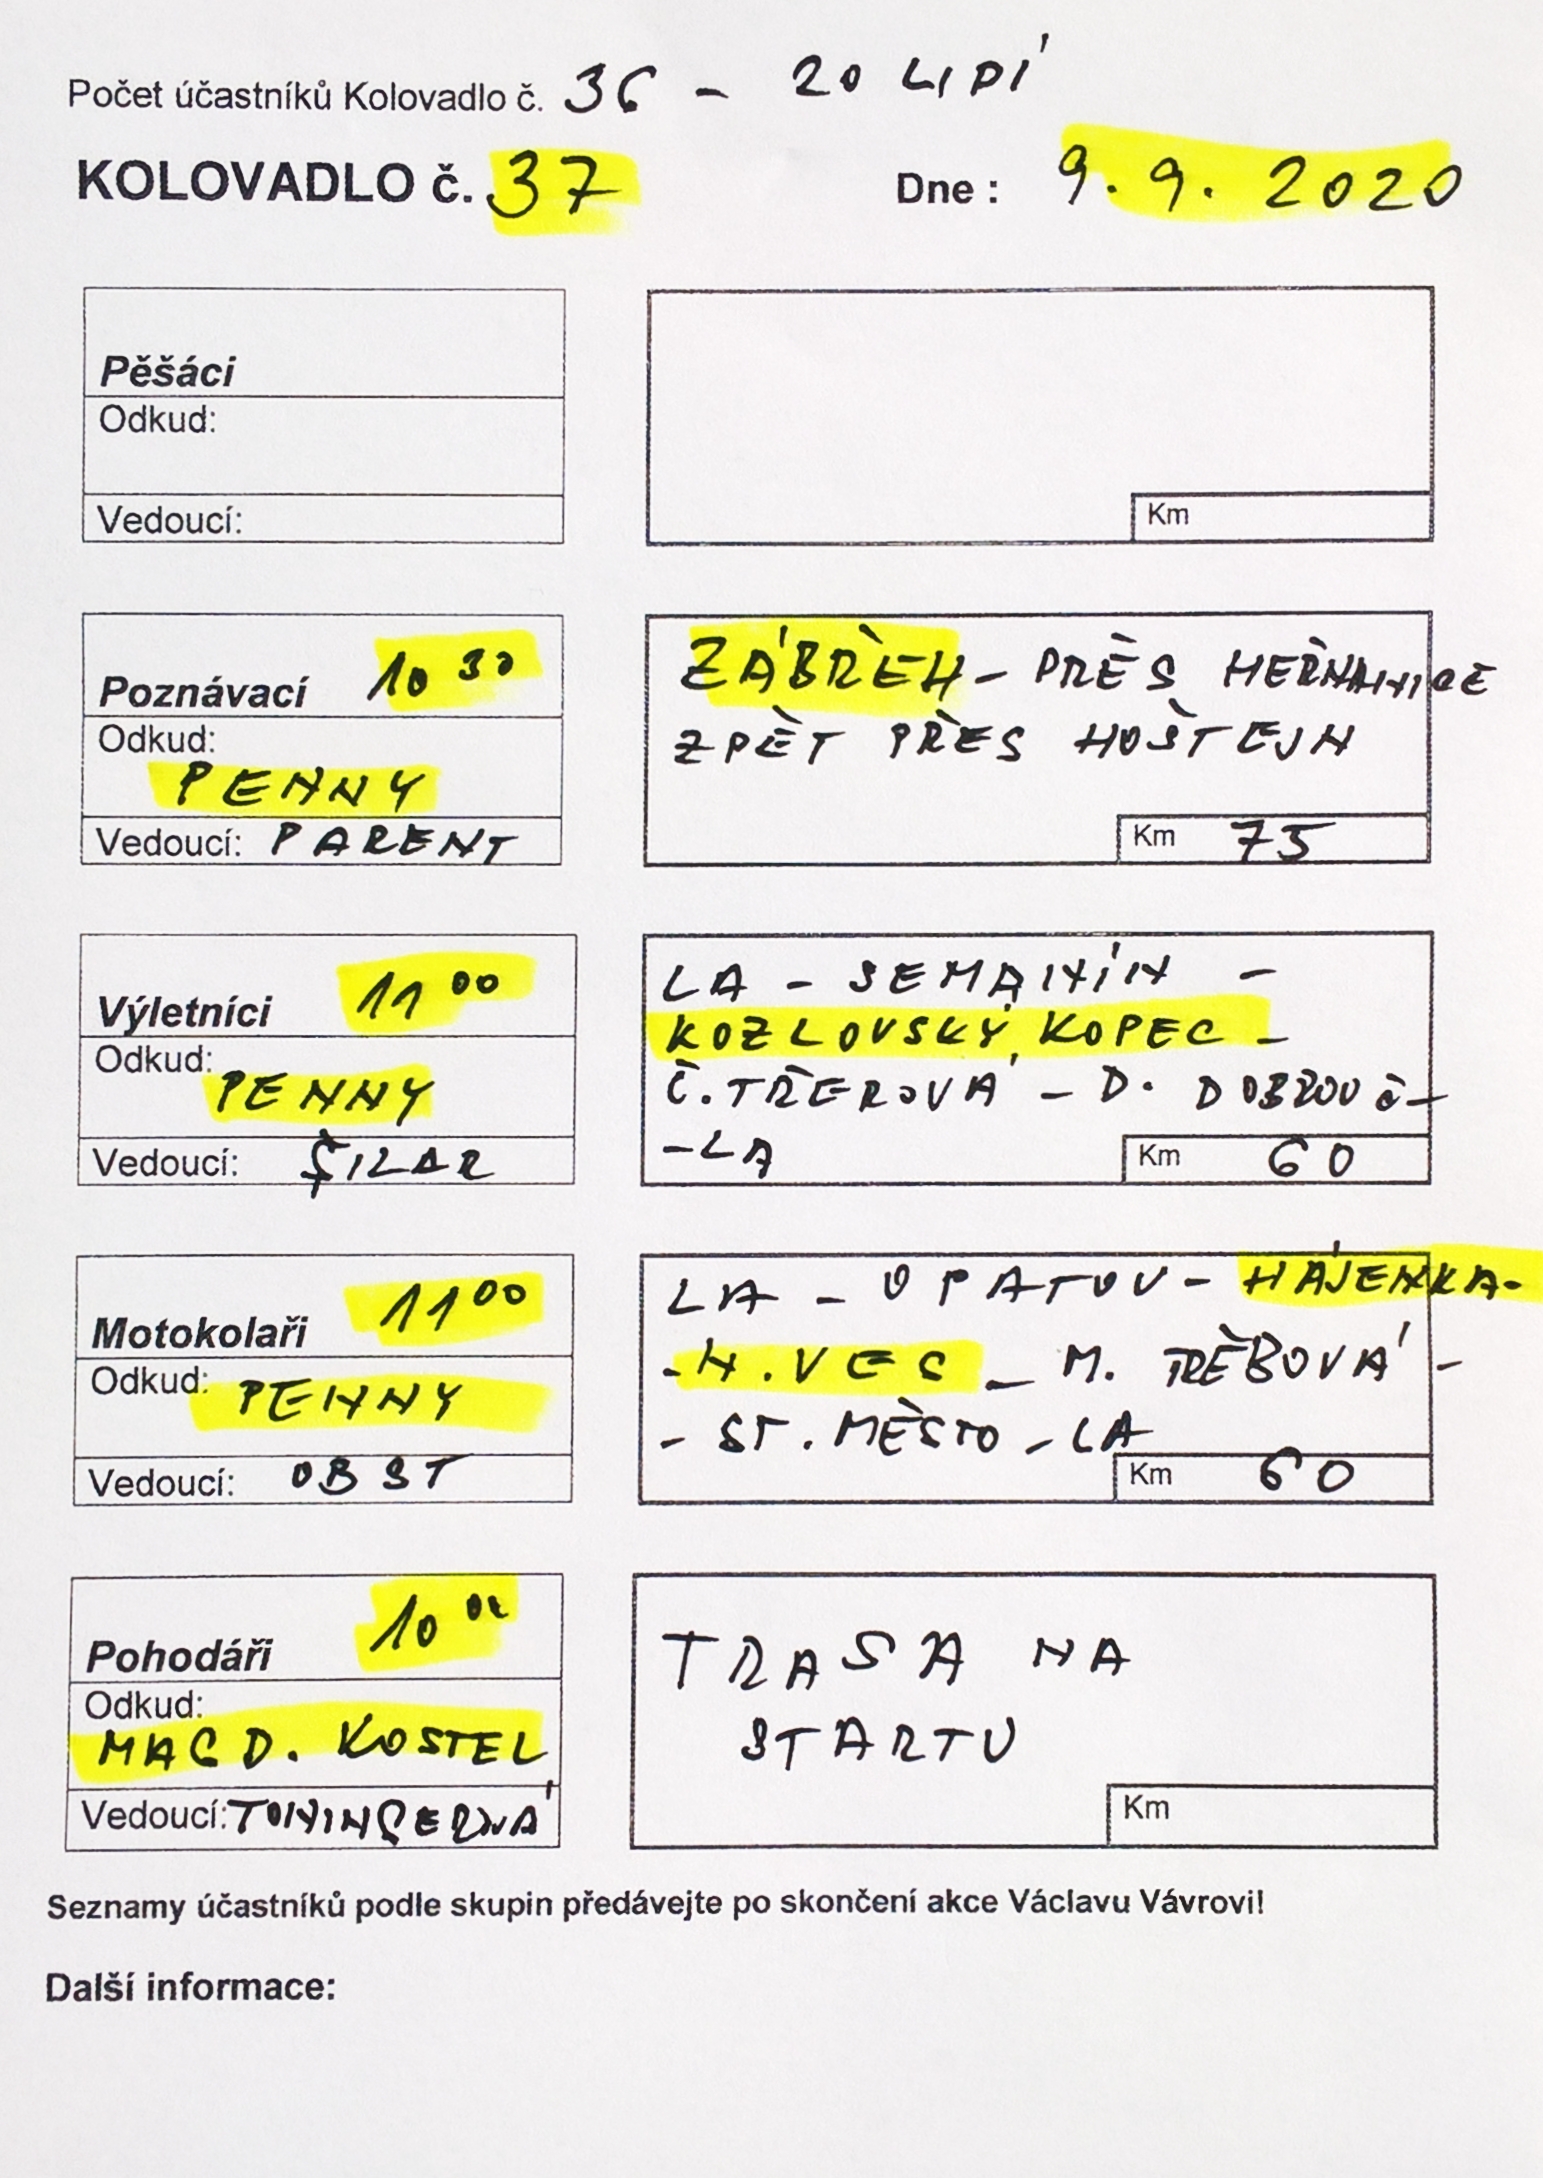 Počet účastníků Kolovadlo č. 36 - 20 LIDÍ
KOLOVADLO č. 37 Dne : 9. 9. 2020
Pěšáci
Odkud:
Vedoucí:
Km
Poznávací 10 30
Odkud:
PENNY
Vedoucí: PARENT
ZÁBŘEH - PŘES HEŘMANICE
ZPĚT PŘES HOŠTEJN
Km 75
Výletníci 11 00
Odkud:
PENNY
Vedoucí: ŠILAR
LA - SEMANÍN -
KOZLOVSKÝ KOPEC -
Č. TŘEBOVÁ - D. DOBROUČ -
- LA
Km 60
Motokolaři 11 00
Odkud: PENNY
Vedoucí: OBST
LA - OPATOV - HÁJENKA -
- N. VES - M. TŘEBOVÁ -
- ST. MĚSTO - LA
Km 60
Pohodáři 10 00
Odkud:
MAGD. KOSTEL
Vedoucí:
TRASA NA
STARTU
Km
Seznamy účastníků podle skupin předávejte po skončení akce Václavu Vávrovi!
Další informace: